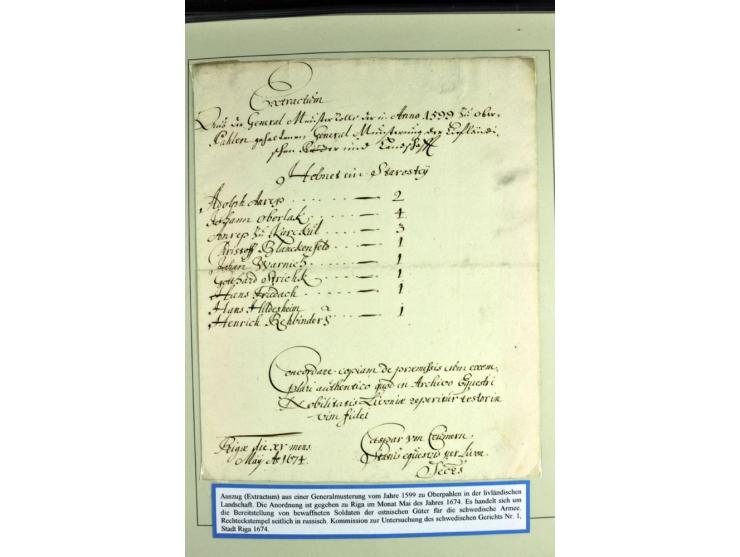 Extractum
Aus der General Munster Rolle der in Anno 1599 zu Ober-
Pahlen gehaltenen General Munsterung der Lieffländi-
schen und Landschafft
Helmet ein Starostey
Adolph Aarep 2
Johann Oberlak 4
Anrep zu 3
Cristoff Blanckenfeld 1
Johan Warnich 1
Gotthard Strick 1
Hans Friedach 1
Hans Hildesheim
Henrick Rehbinders 1
Concordare copiam de præmissis cum exem-
plari authentico quod in Archivo Equestri
Nobilitatis Livoniæ reperitur testor in
vim fidei
Rigæ die xv mens.
May Ao 1674.
Caspar von Ceumern
Ordinis equestris per Livon.
Secrs
Auszug (Extractum) aus einer Generalmusterung vom Jahre 1599 zu Oberpahlen in der livländischen
Landschaft. Die Anordnung ist gegeben zu Riga im Monat Mai des Jahres 1674. Es handelt sich um
die Bereitstellung von bewaffneten Soldaten der estnischen Güter für die schwedische Armee.
Rechteckstempel seitlich in russisch. Kommission zur Untersuchung des schwedischen Gerichts Nr. 1,
Stadt Riga 1674.